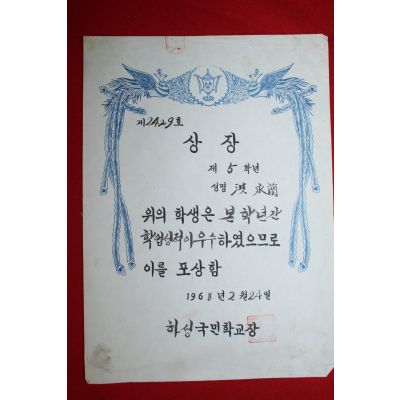 제2429호
상장
제 5 학년
성명 洪承蘭
위의 학생은 본학년간
학업성적이우수하였으므로
이를 포상함
1968년2월24일
하성국민학교장